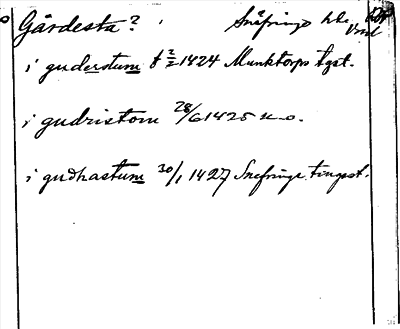 Gärdesta? Snåfringe hd.
Vml
i guderstum t 2/2 1424 Munktorps tgst.
i gudristom 28/6 1425 n.o.
i gudhastum 30/1 1427 Snefringe tingest.